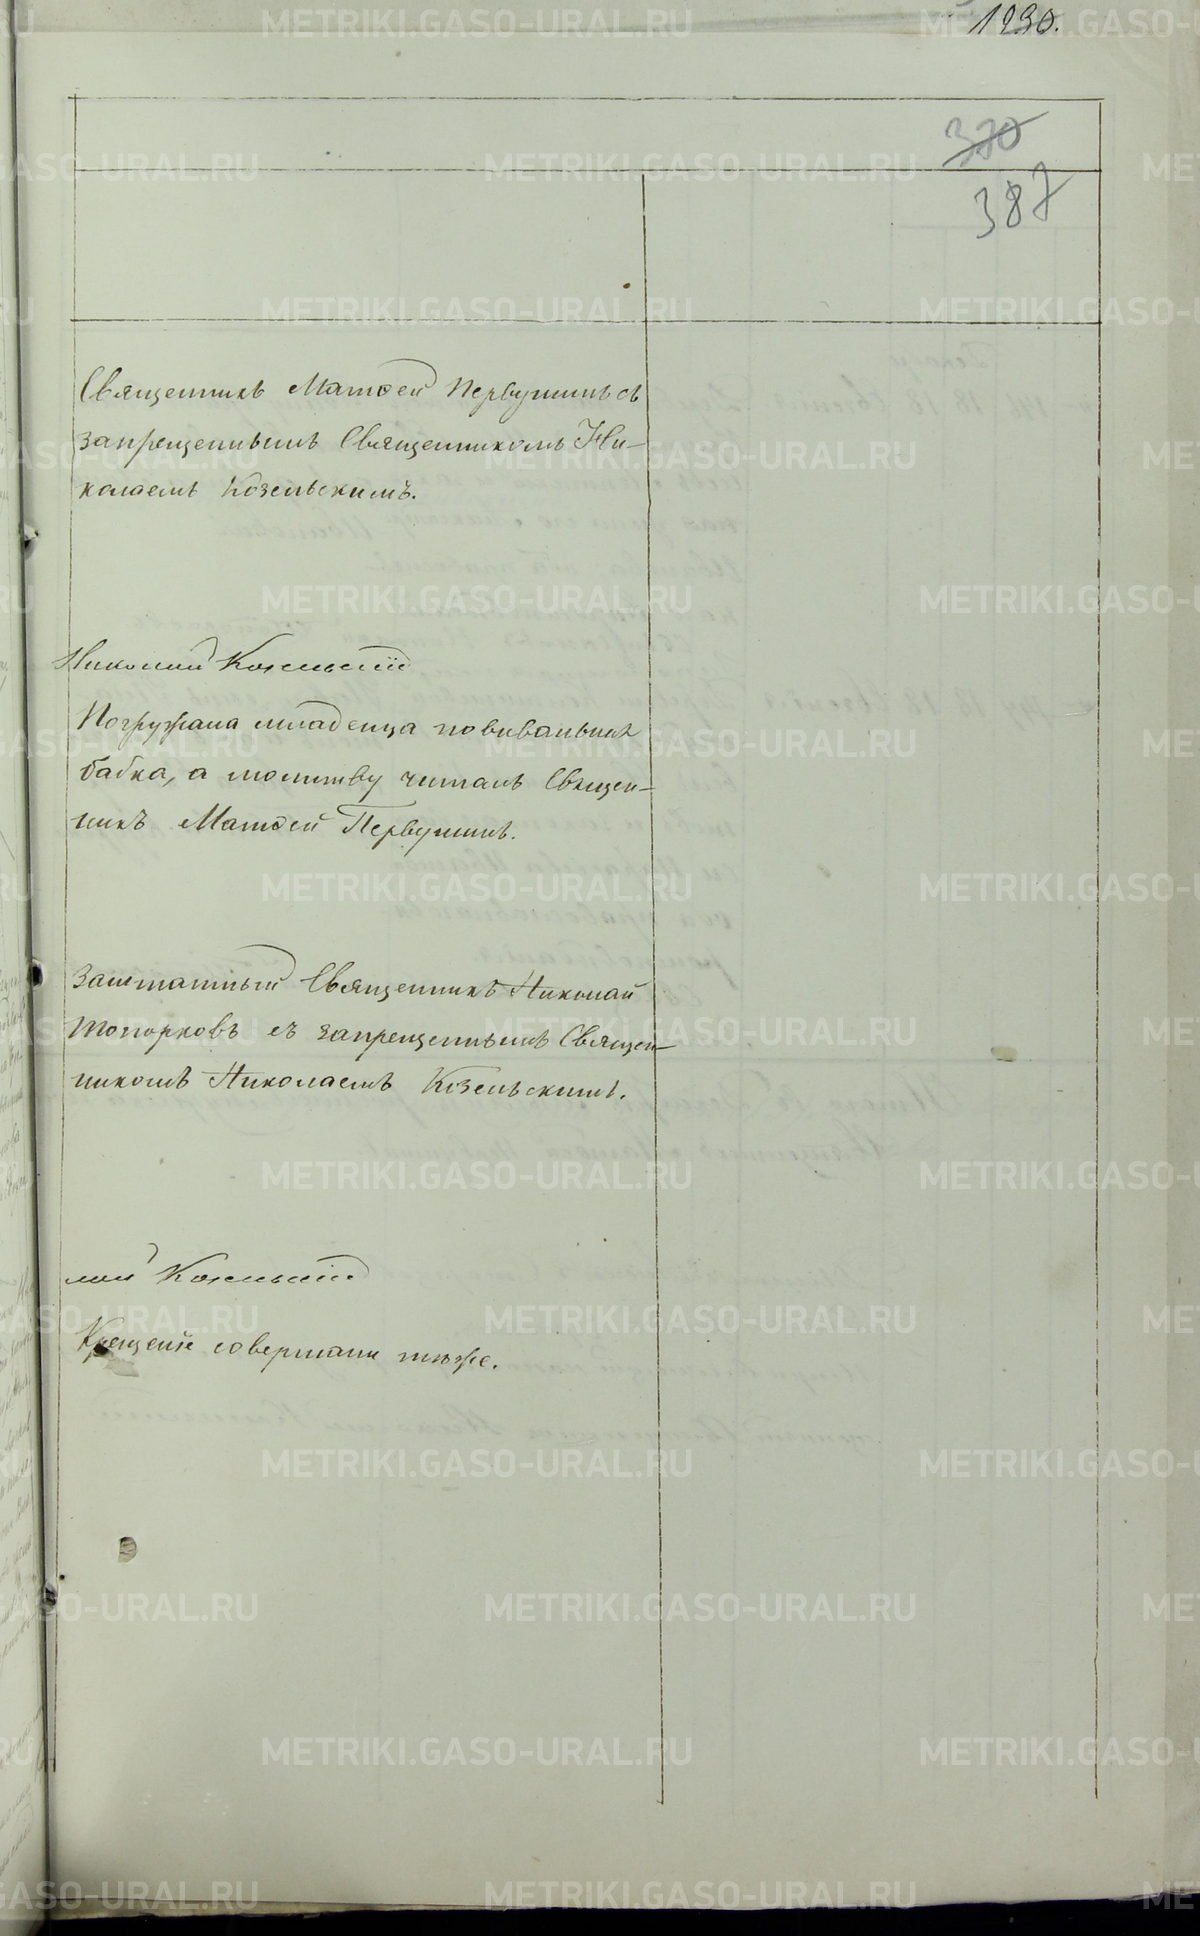 1230.
370
387
Священникъ Матѳей Первушинъ съ
запрещеннымъ Священникомъ Ни-
колаемъ Козельскимъ.
Николай Козельскій
Погружала младенца повивальная
бабка, а молитву читалъ Священ-
никъ Матѳей Первушинъ.
Заштатный Священникъ Николай
Топорковъ съ запрещеннымъ Священ-
никомъ Николаемъ Козельскимъ.
лай Козельскій
Крещеніе совершали тѣже.